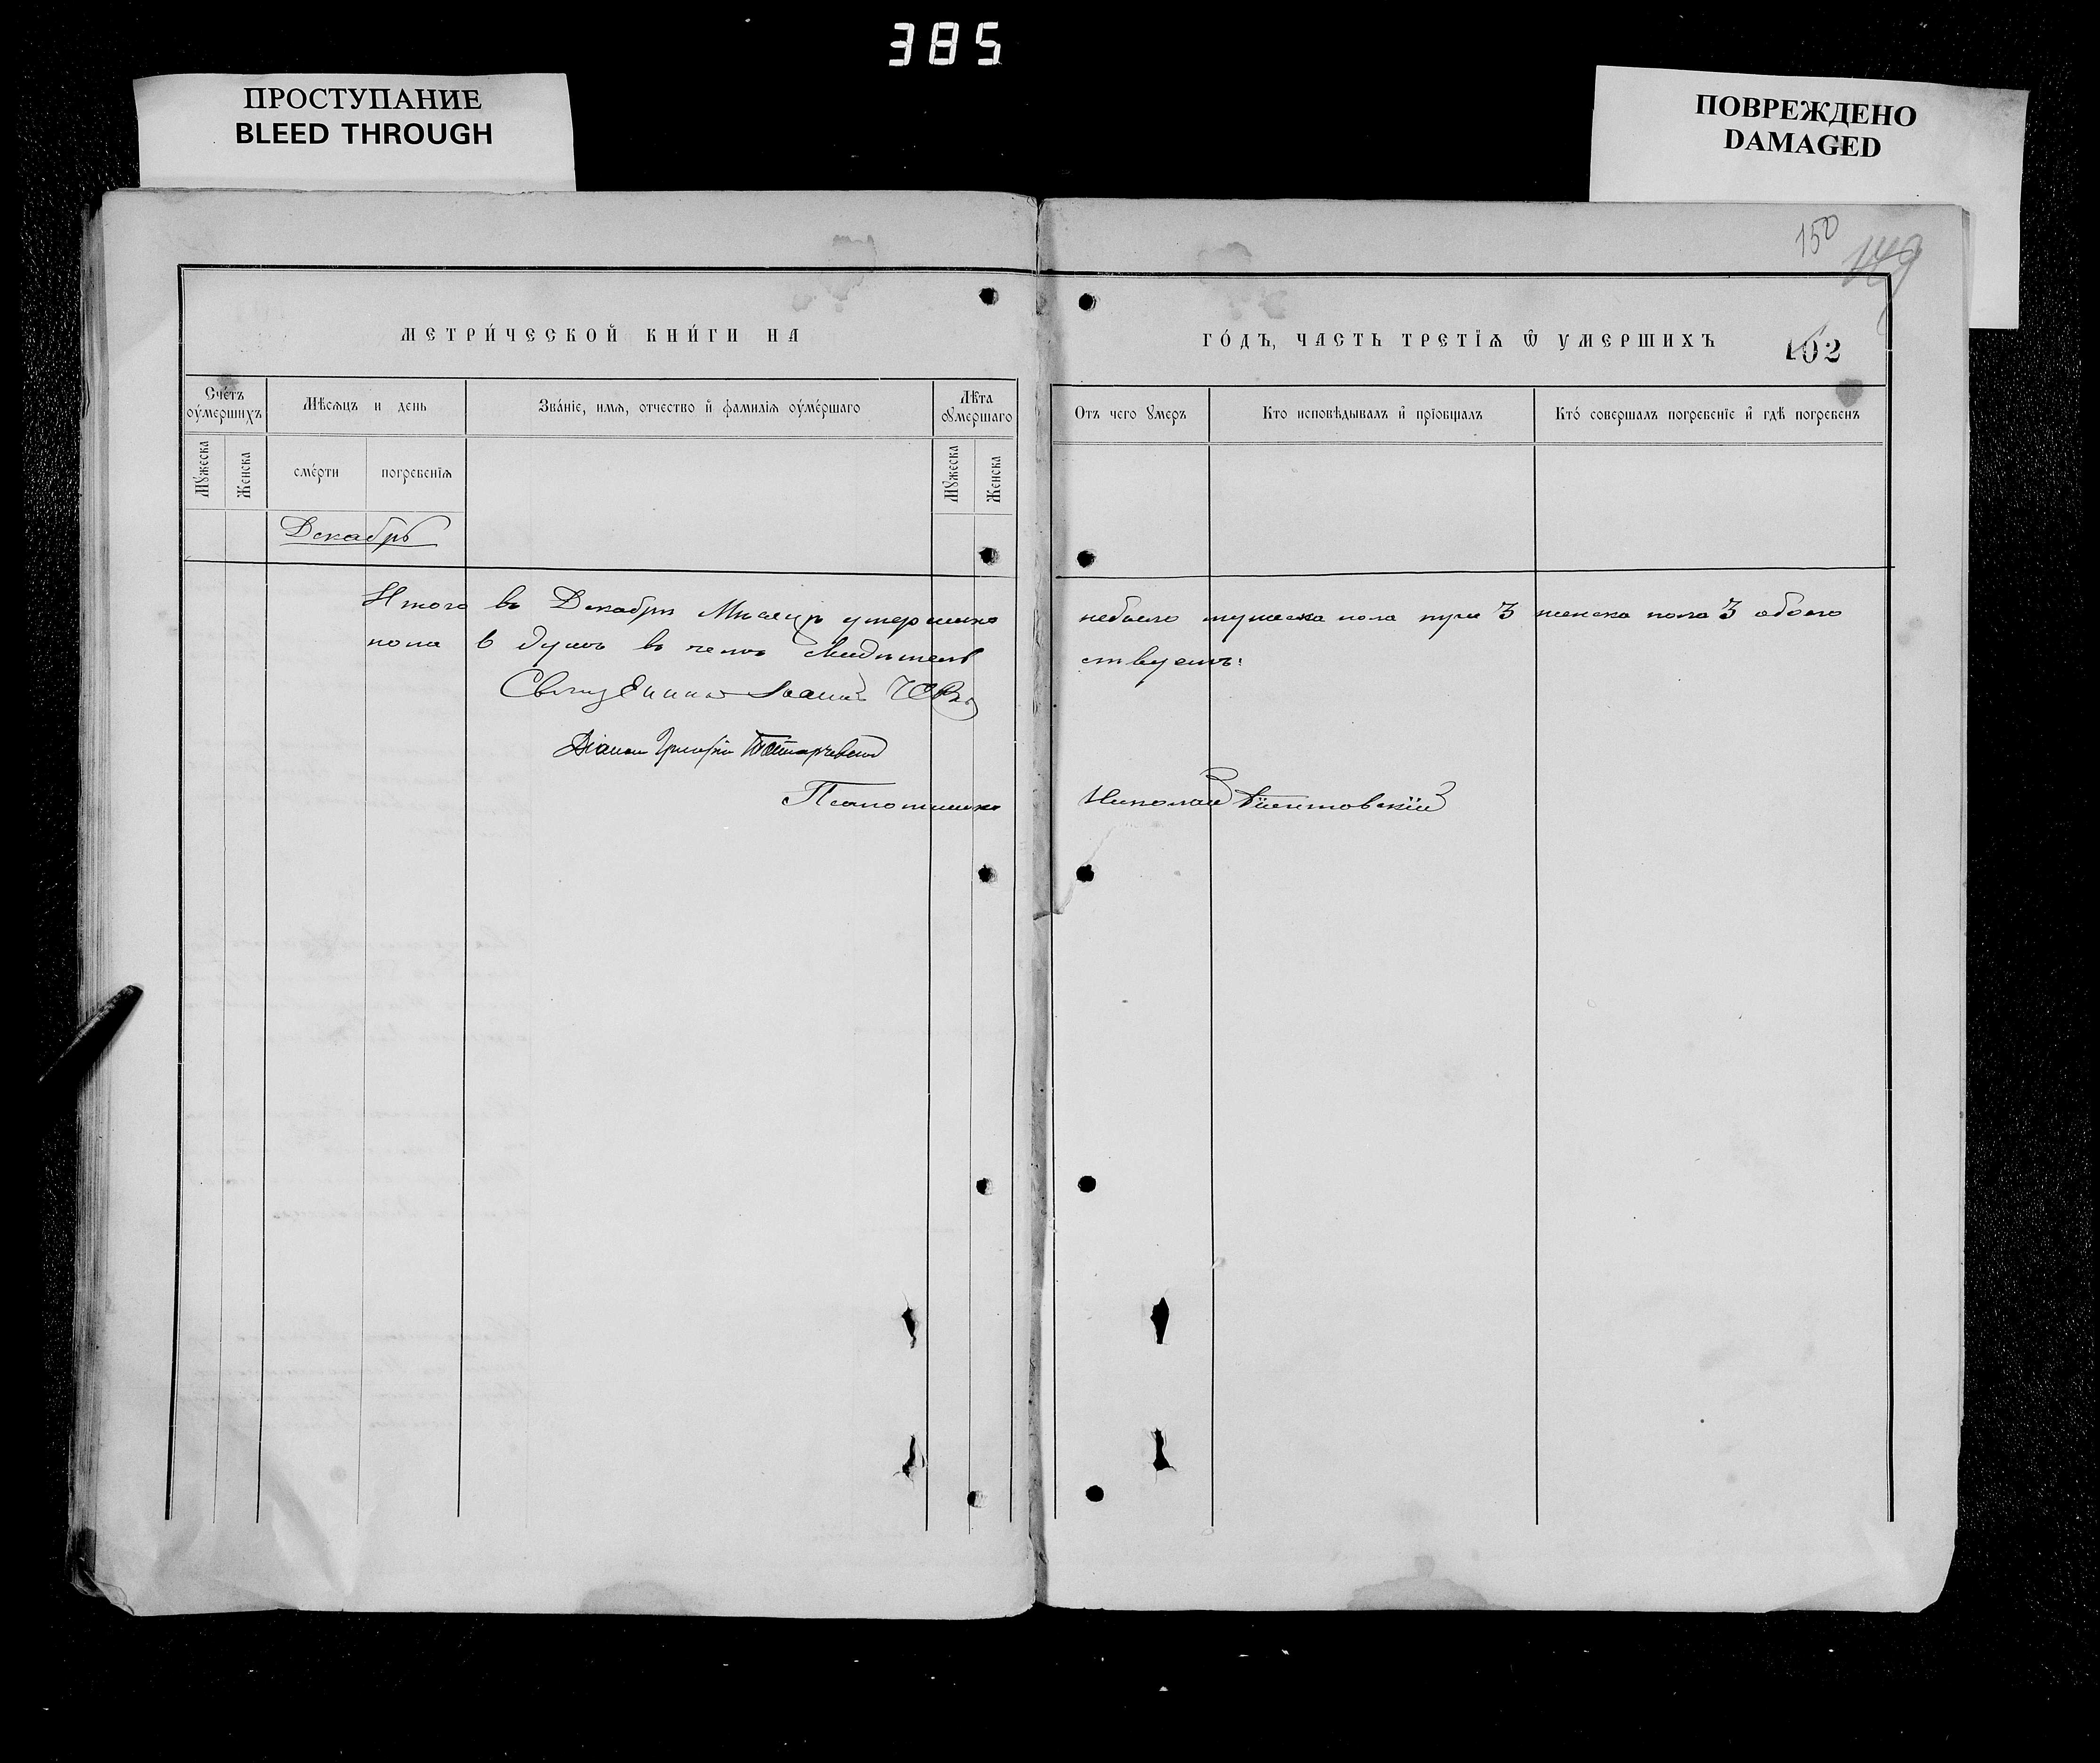 385
ПРОСТУПАНИЕ
BLEED THROUGH
ПОВРЕЖДЕНО
DAMAGED
150
149
МЕТРИ́ЧЕСКОЙ КНИ́ГИ НА
ГО́ДЪ, ЧАСТЬ ТРЕТЇѦ Ѿ УМЕРШИХЪ
102
Сче́тъ оу́мершихъ
Мѣсѧцъ и день
Зва́нїе, имѧ, отчество и҆ фамилїѧ оу́ме́ршаго
Лѣта оу́мершаго
Отъ чего ꙋмеръ
Кто исповѣдывалъ и҆ прїобщалъ
Кто́ совершалъ погребенїе и҆ гдѣ погребенъ
Мꙋжеска
Женска
сме́рти
погребенїѧ
Мꙋжеска
Женска
Декабрь
Итого въ Декабрѣ Мѣсяцѣ умершихъ небыло мужеска пола три 3 женска пола 3 обоего
пола 6 душъ въ чемъ свидѣтельствуемъ:
Священникъ Іоаннъ
Діаконъ Григорій
Псаломщикъ Николай